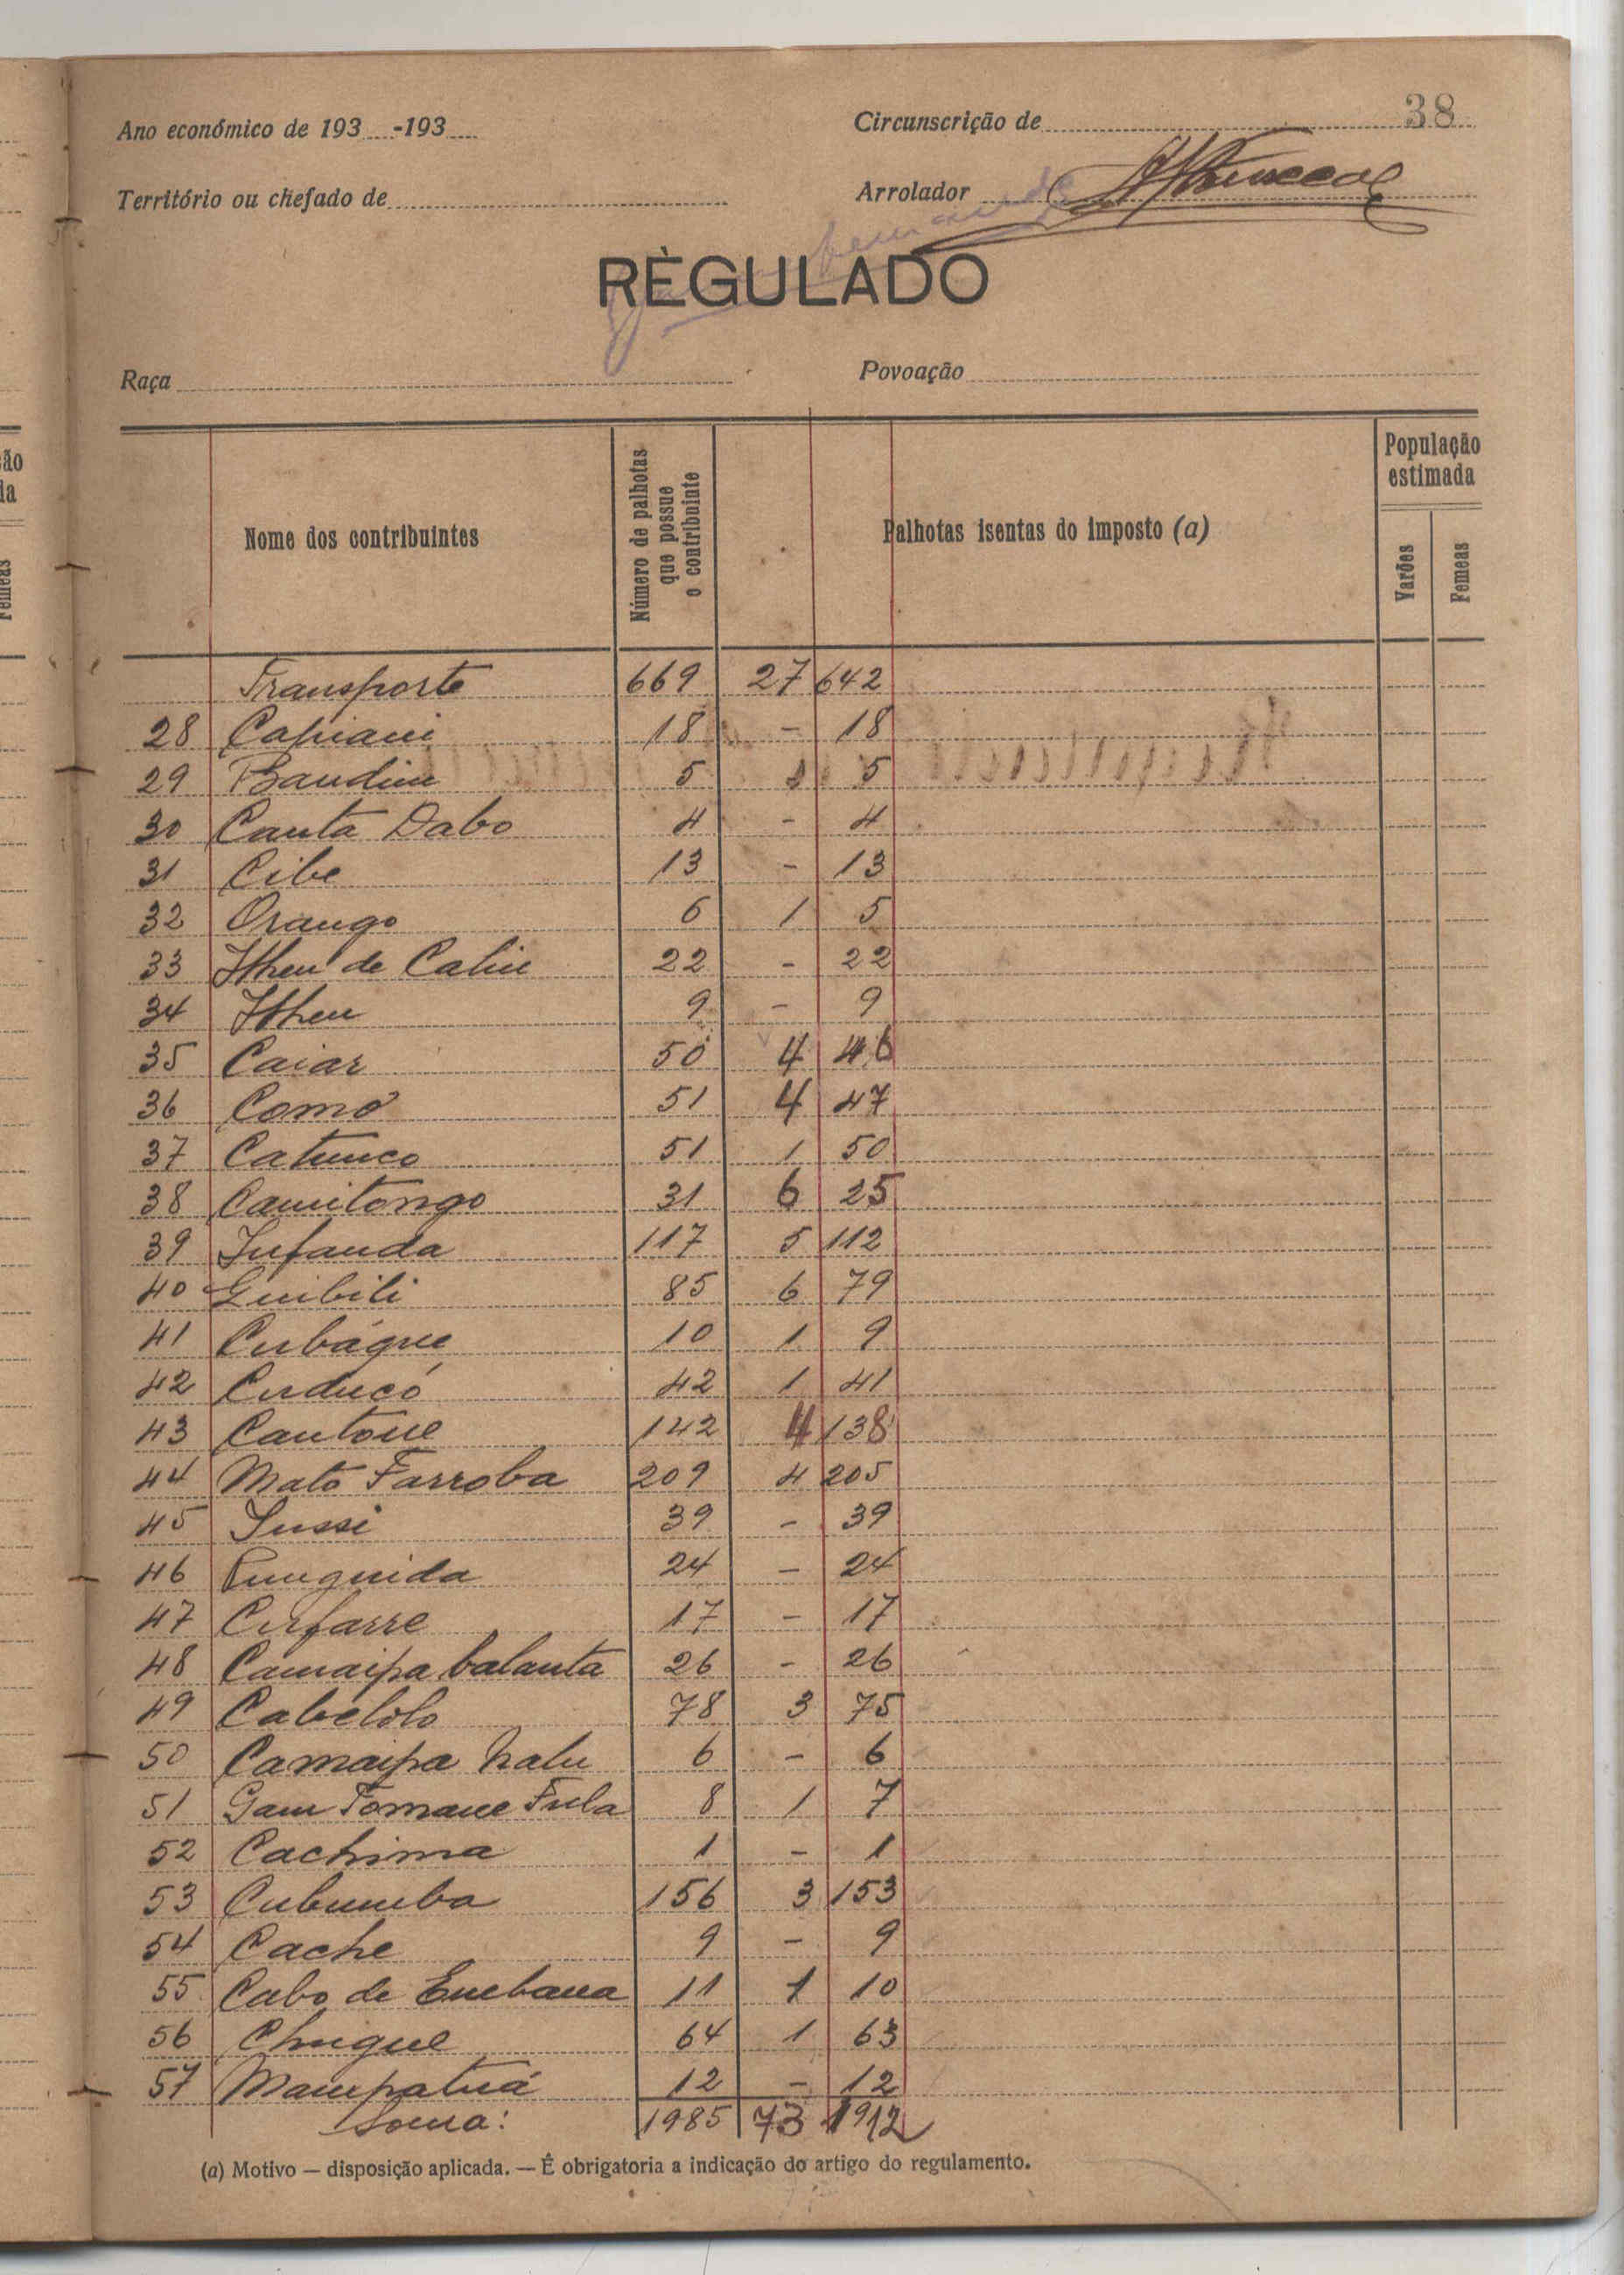 38
Ano económico de 193 -193
Circunscrição de
Território ou chefado de
Arrolador
RÈGULADO
Raça
Povoação
Nome dos contribuintes
Número de palhotas que possue o contribuinte
Palhotas isentas do imposto (a)
População estimada
Varões
Femeas
Transporte 669 27 642
28 Capiani 18 - 18
29 Bandim 5 5
30 Canta Dabo 4 - 4
31 Cibe 13 - 13
32 Orango 6 1 5
33 Ilheu de Calin 22 - 22
34 Ilheu 9 - 9
35 Caiar 50 4 46
36 Como 51 4 47
37 Catunco 51 1 50
38 Camitongo 31 6 25
39 Iufanda 117 5 112
40 Guibili 85 6 79
41 Cubáque 10 1 9
42 Cuducó 42 1 41
43 Cantone 142 4 138
44 Mato Farroba 209 4 205
45 Iussi 39 - 39
46 24 - 24
47 Cufarre 17 - 17
48 Camaipa balanta 26 - 26
49 Cabelolo 78 3 75
50 Camaipa Nalu 6 - 6
51 Gam Tomane Fula 8 1 7
52 Cachima 1 - 1
53 Cubumba 156 3 153
54 Cache 9 - 9
55 Cabo de 11 1 10
56 Chugue 64 1 63
57 Mampatuá 12 - 12
Soma: 1985 73 1912
(a) Motivo — disposição aplicada. — É obrigatoria a indicação do artigo do regulamento.